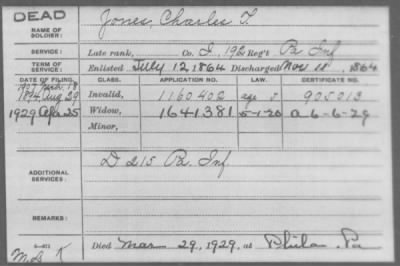 DEAD
NAME OF SOLDIER: Jones, Charles T.
SERVICE: Late rank, Co. I, 192 Reg't Pa Inf
TERM OF SERVICE: Enlisted July 12, 1864 Discharged Nov 11, 1864
DATE OF FILING. CLASS. APPLICATION NO. LAW. CERTIFICATE NO.
1907 18
1894 Aug 29 Invalid, 1160402 age 905013
1929 Apr 25 Widow, 1641381 5-1-20 a 6-6-29
Minor,
ADDITIONAL SERVICES: D 215 Pa. Inf
REMARKS:
Died Mar 29, 1929, at Phila. Pa